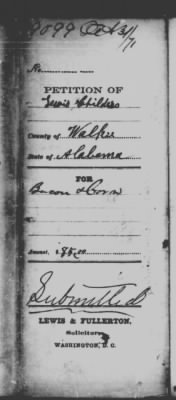 9099 Oct 3/71
No.
PETITION OF
Lewis Childers
County of Walker
State of Alabama
FOR
Bacon & Corn
Amount, $85.00
Submitted
LEWIS & FULLERTON,
Solicitors,
WASHINGTON, D. C.